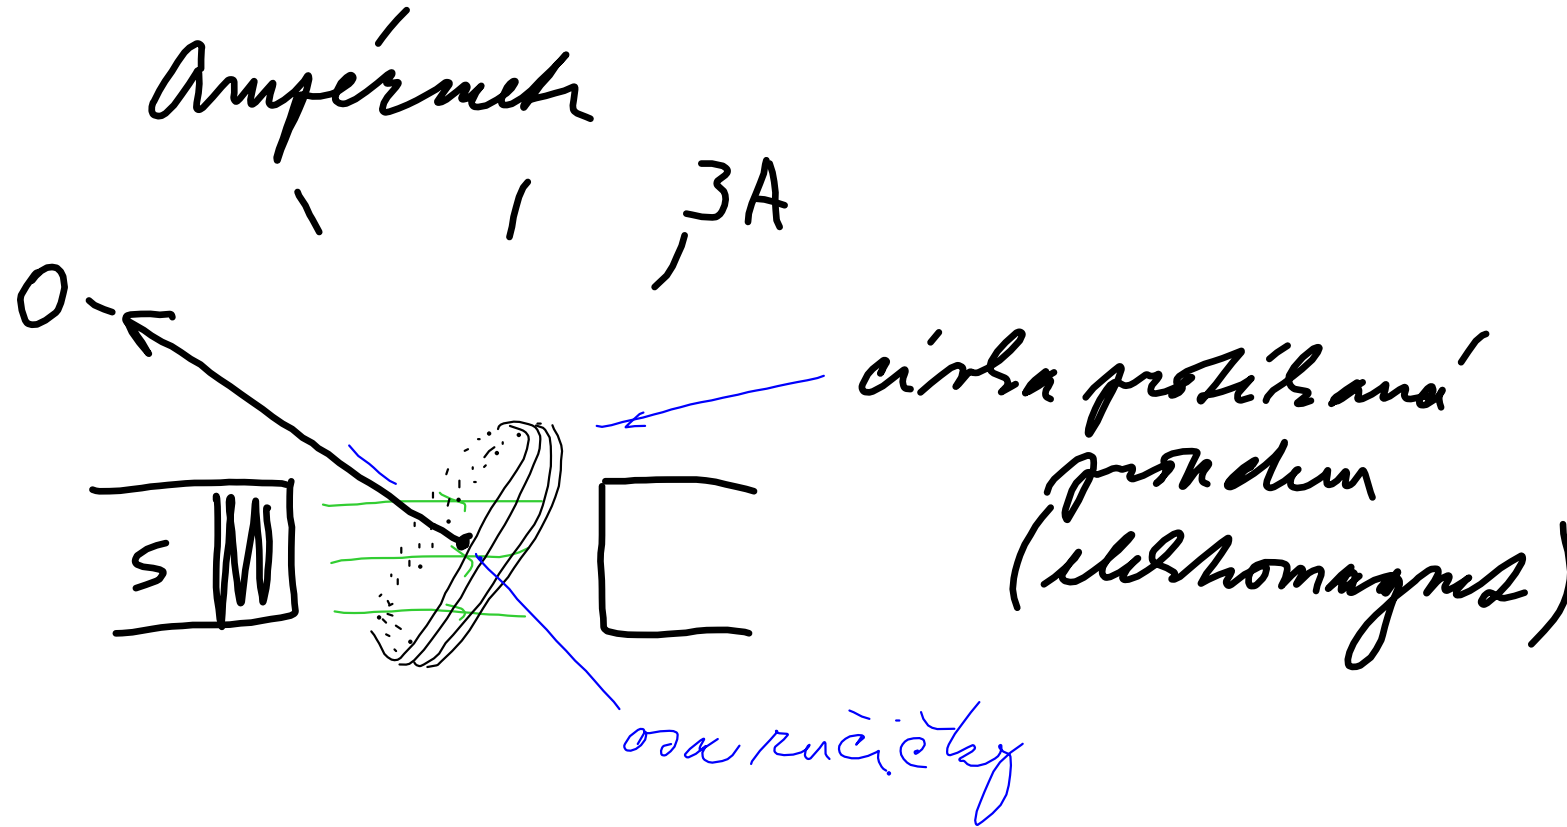 Ampérmetr
3A
0
cívka protékaná
proudem
S
(elektromagnet)
osa ručičky